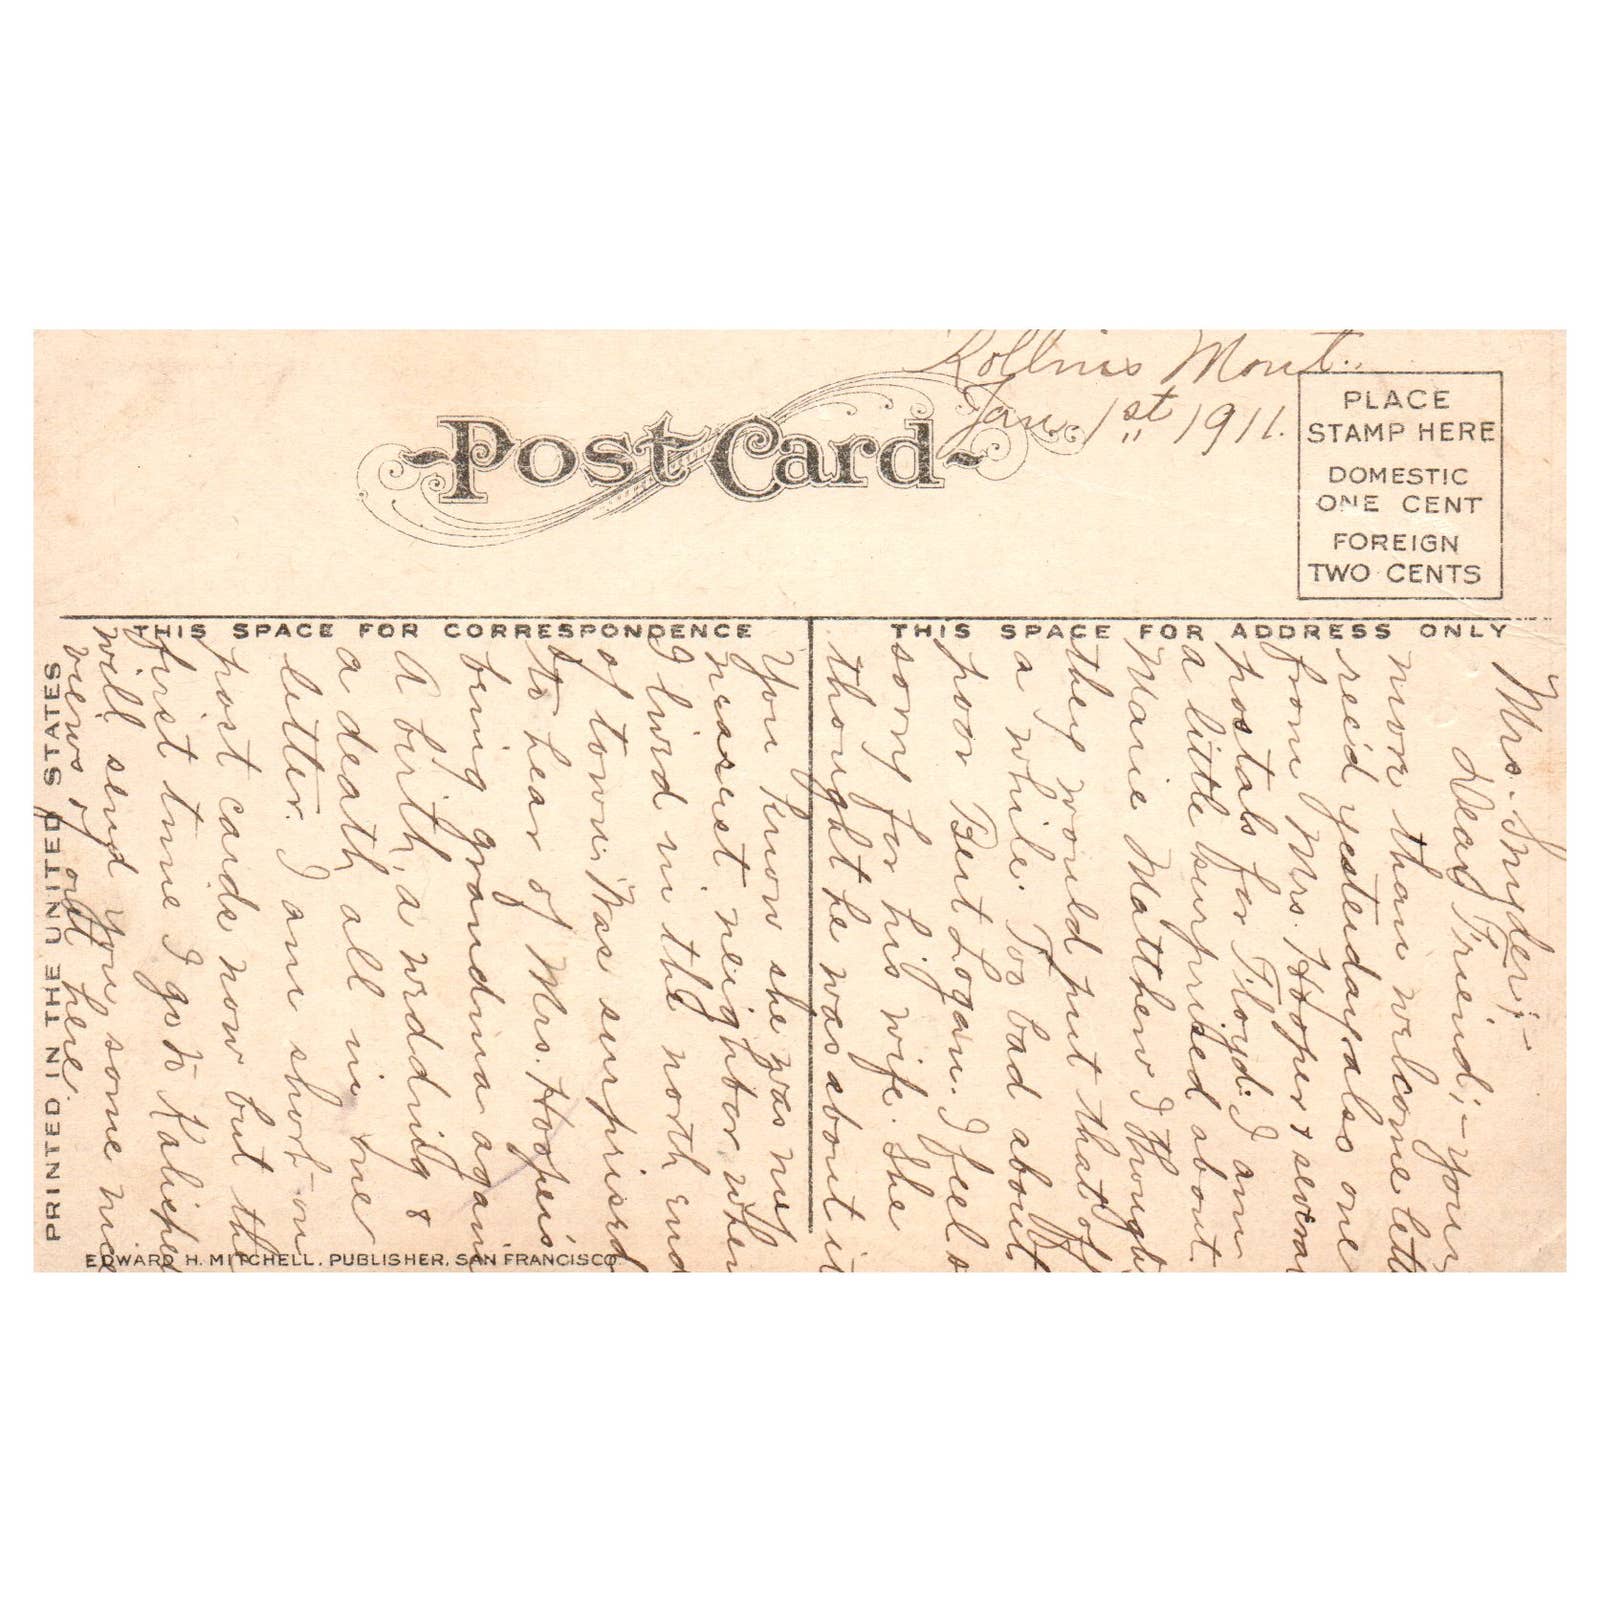 Rollins Mont.
Jan. 1st 1911.
Post Card
PLACE
STAMP HERE
DOMESTIC
ONE CENT
FOREIGN
TWO CENTS
THIS SPACE FOR CORRESPONDENCE
THIS SPACE FOR ADDRESS ONLY
Mrs. Snyder;-
Dear Friend;- your
more than welcome lett
rec'd yesterday, also one
from Mrs. Hooper & several
postals for Floyd. I am
a little surprised about
Marie Matthew I thought
they would put that off
a while. Too bad about
poor Bert Logan. I feel so
sorry for his wife. She
thought he was about it
You know she was my
nearest neighbor when
I lived in the north end
of town. Was surprised
to hear of Mrs. Hooper's
being grandma again
A birth, a wedding &
a death all in one
letter. I am short on
post cards now but the
first time I go to Kalispell
will send you some nice
views of out here.
PRINTED IN THE UNITED STATES
EDWARD H. MITCHELL, PUBLISHER, SAN FRANCISCO